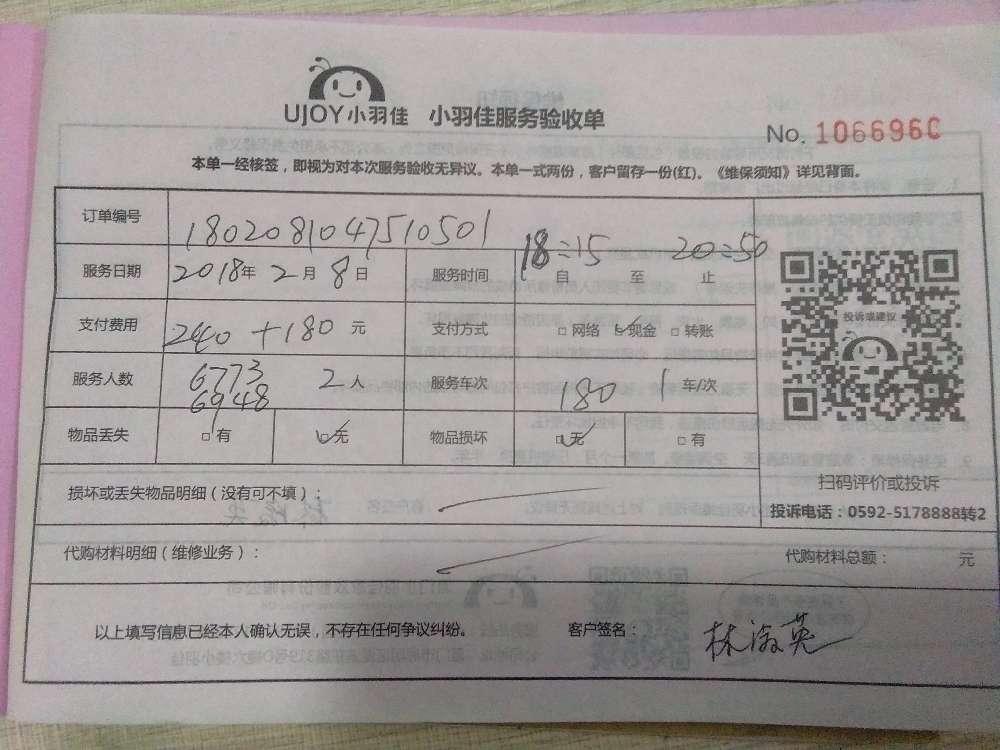 UJOY小羽佳 小羽佳服务验收单
No. 106696C
本单一经核签，即视为对本次服务验收无异议。本单一式两份，客户留存一份(红)。《维保须知》详见背面。
订单编号 1802081047510501
服务日期 2018年 2月 8日 服务时间 18:15 自 至 20:50 止
支付费用 2440+180 元 支付方式 □网络 ☑现金 □转账
服务人数 6773 6948 2人 服务车次 180 1 车/次
物品丢失 □有 ☑无 物品损坏 ☑无 □有
投诉或建议
扫码评价或投诉
投诉电话：0592-5178888转2
损坏或丢失物品明细（没有可不填）：
代购材料明细（维修业务）： 代购材料总额： 元
以上填写信息已经本人确认无误，不存在任何争议纠纷。 客户签名： 林淑英